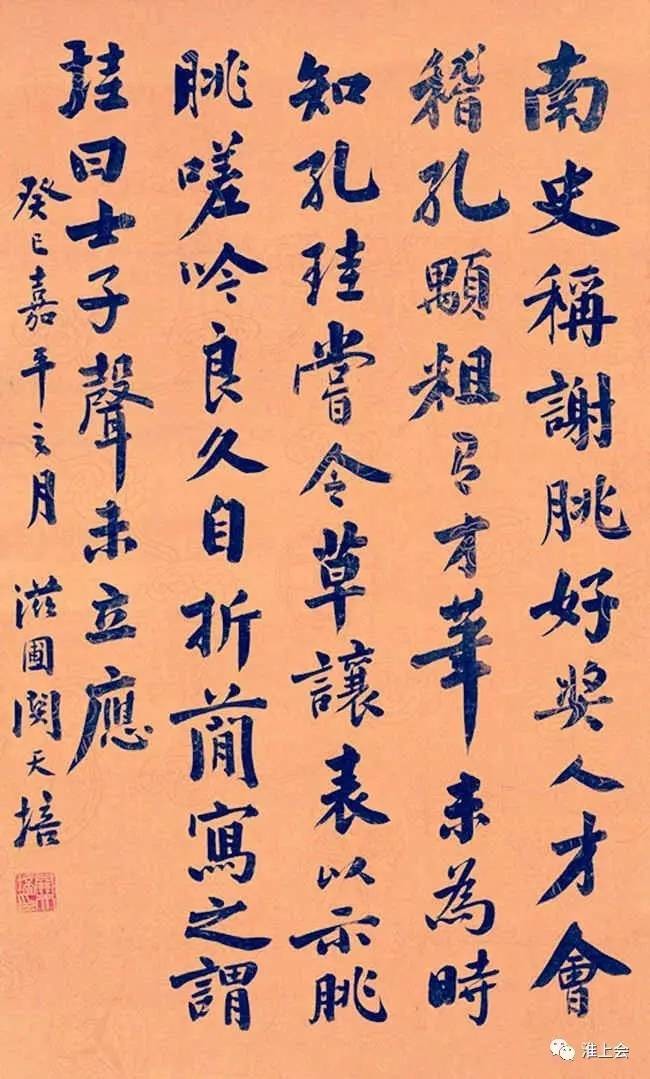 南史稱謝朓好奬人才會
稽孔顗粗有才華未為時
知孔珪嘗令草讓表以示朓
朓嗟吟良久自折簡寫之謂
珪曰士子聲未立應
癸巳嘉平之月 滋圃関天培
淮上会